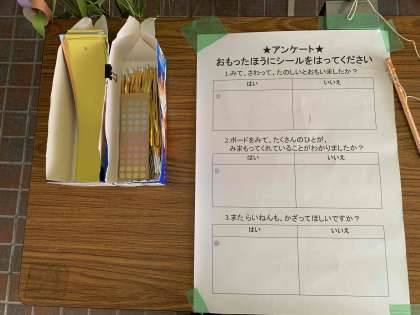 ★アンケート★
おもったほうにシールをはってください
1.みて、さわって、たのしいとおもいましたか？
はい いいえ
2.ボードをみて、たくさんのひとが、
みまもってくれていることがわかりましたか？
はい いいえ
3.またらいねんも、かざってほしいですか？
はい いいえ